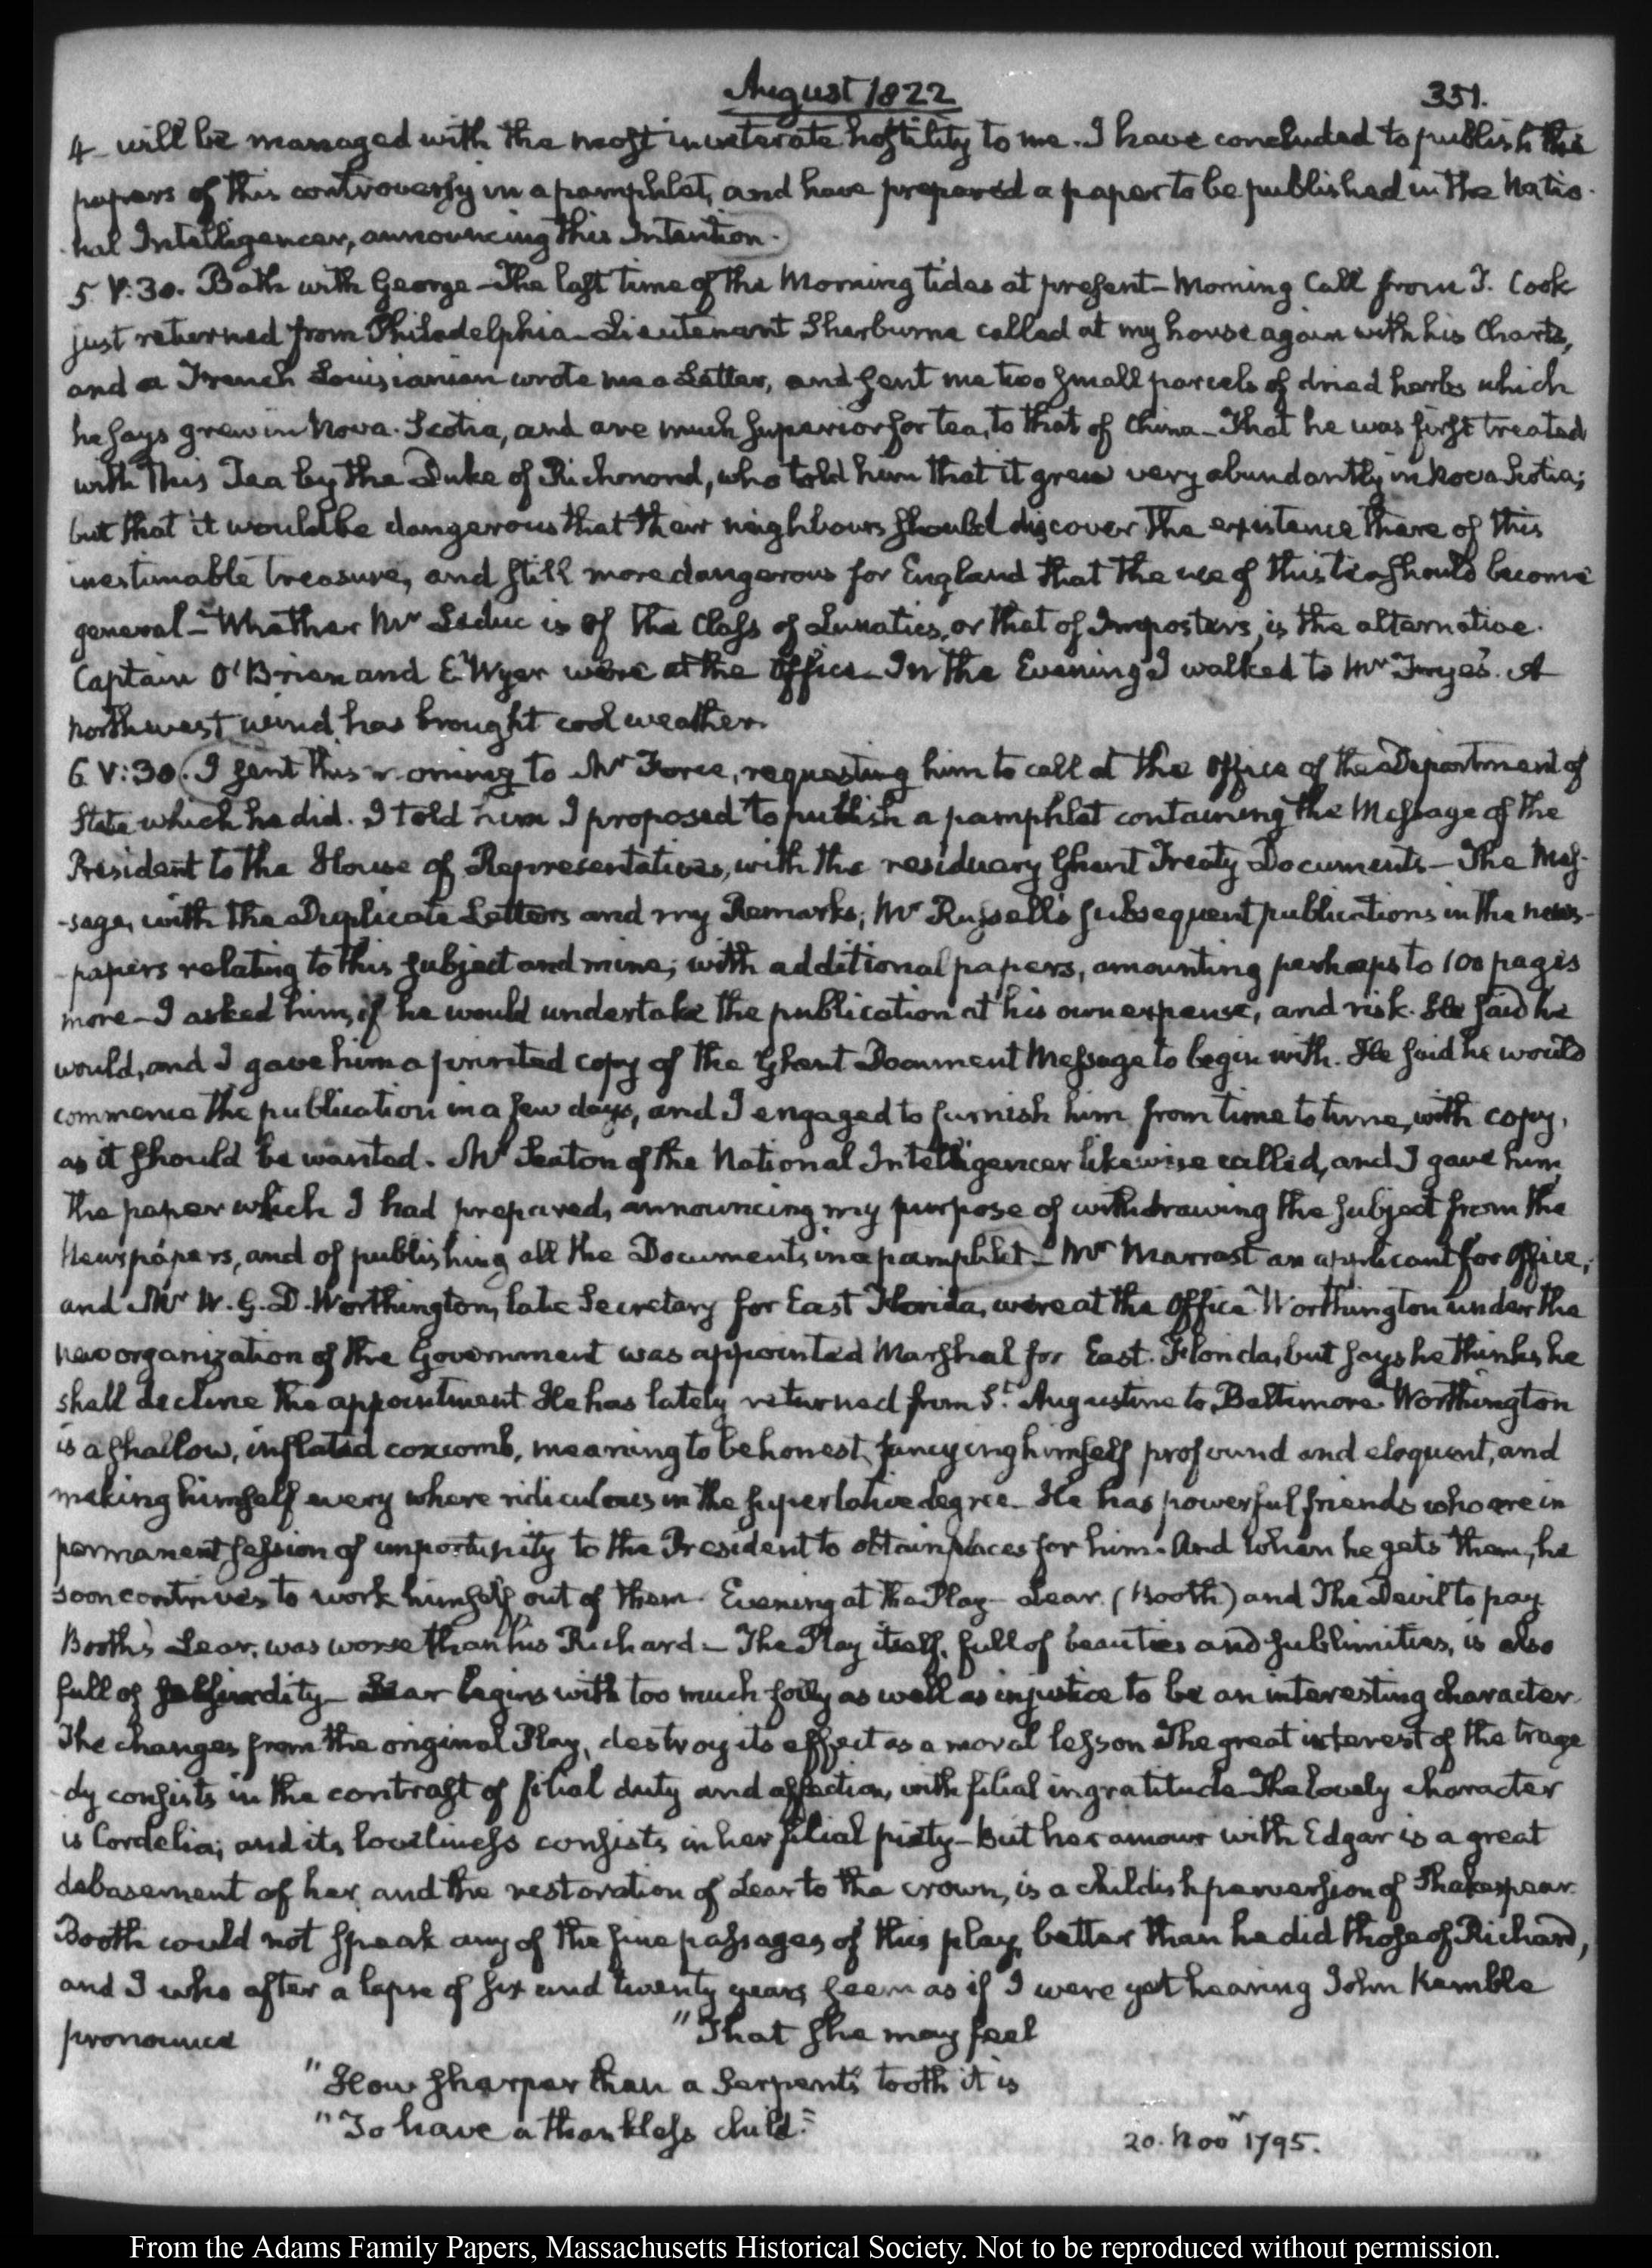 August 1822
351.
4 - will be managed with the most inveterate hostility to me. I have concluded to publish the
papers of this controversy in a pamphlet, and have prepared a paper to be published in the Natio-
nal Intelligencer, announcing this Intention.
5 V:30. Bath with George - The last time of the Morning tides at present - Morning Call from J. Cook
just returned from Philadelphia - Lieutenant Sherburne called at my house again with his Charts,
and a French Louisianian wrote me a Letter, and sent me two small parcels of dried herbs which
he says grew in Nova-Scotia, and are much superior for tea, to that of China - That he was first treated
with this Tea by the Duke of Richmond, who told him that it grew very abundantly in Nova Scotia;
but that it would be dangerous that their neighbours should discover the existence there of this
inestimable treasure, and still more dangerous for England that the use of this tea should become
general - Whether Mr Leduc is of the Class of Lunatics, or that of Impostors, is the alternative.
Captain O'Brien and E. Wyer were at the Office - In the Evening I walked to Mr Frye's. A
northwest wind has brought cool weather.
6 V:30. I sent this morning to Mr Force, requesting him to call at the Office of the Department of
State which he did. I told him I proposed to publish a pamphlet containing the Message of the
President to the House of Representatives, with the residuary Ghent Treaty Documents - The Mes-
-sage, with the Duplicate Letters and my Remarks; Mr Russell's subsequent publications in the news-
-papers relating to this subject and mine; with additional papers, amounting perhaps to 100 pages
more - I asked him, if he would undertake the publication at his own expense, and risk. He said he
would, and I gave him a printed copy of the Ghent Document Message to begin with. He said he would
commence the publication in a few days, and I engaged to furnish him from time to time, with copy,
as it should be wanted. Mr Seaton of the National Intelligencer likewise called, and I gave him
the paper which I had prepared, announcing my purpose of withdrawing the subject from the
Newspapers, and of publishing all the Documents in a pamphlet - Mr Marrast an applicant for Office,
and Mr W. G. D. Worthington, late Secretary for East Florida, were at the Office. Worthington under the
new organization of the Government was appointed Marshal for East-Florida, but says he thinks he
shall decline the appointment. He has lately returned from St. Augustine to Baltimore. Worthington
is a shallow, inflated coxcomb, meaning to be honest, fancying himself profound and eloquent, and
making himself every where ridiculous in the superlative degree - He has powerful friends who are in
permanent session of importunity to the President to obtain places for him. And when he gets them, he
soon contrives to work himself out of them. Evening at the Play - Lear (Booth) and The Devil to pay
Booth's Lear, was worse than his Richard - The Play itself, full of beauties and sublimities, is also
full of absurdity - Lear begins with too much folly as well as injustice to be an interesting character.
The changes from the original Play, destroy its effect as a moral lesson. The great interest of the trage
-dy consists in the contrast of filial duty and affection, with filial ingratitude. The lovely character
is Cordelia; and its loveliness consists in her filial piety - But her amour with Edgar is a great
debasement of her, and the restoration of Lear to the crown, is a childish perversion of Shakespear.
Booth could not speak any of the fine passages of this play, better than he did those of Richard,
and I who after a lapse of six and twenty years seem as if I were yet hearing John Kemble
pronounce "That she may feel
"How sharper than a Serpent's tooth it is
"To have a thankless child."
20. Novr 1795.
From the Adams Family Papers, Massachusetts Historical Society. Not to be reproduced without permission.